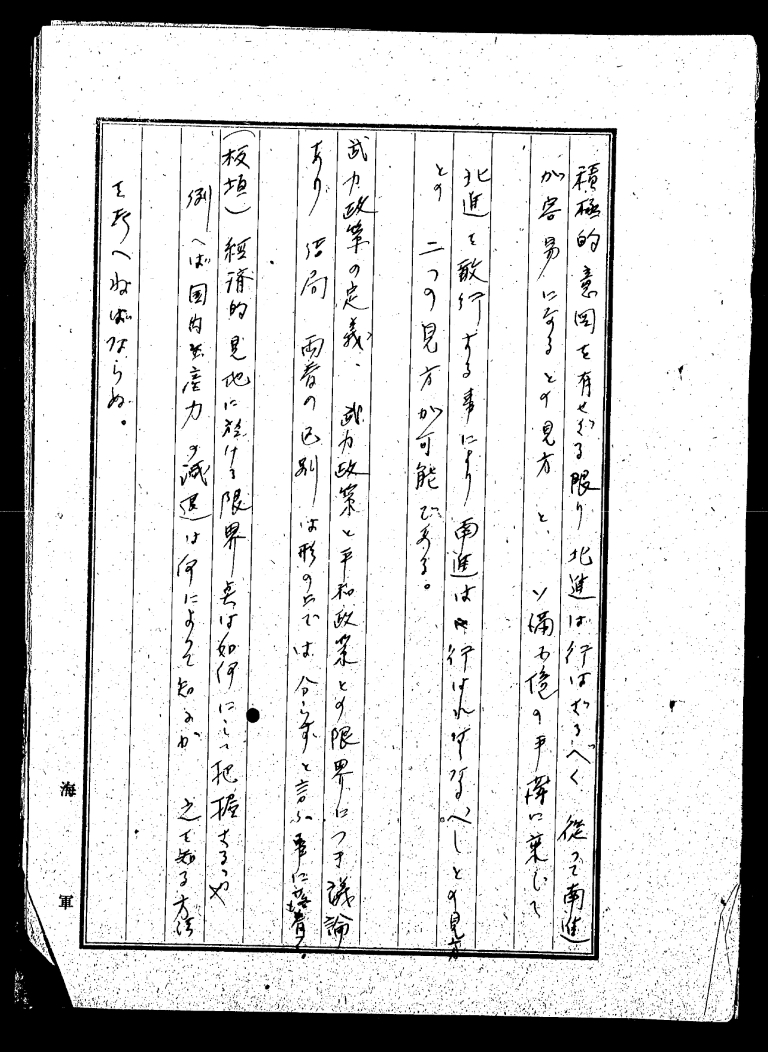 積極的意図を有せざる限り北進は行はざるべく 従つて南進
が容易になるとの見方と、ソ満の平穏に乗じて
北進を敢行する事により南進は行はれざるべしとの見方
との二つの見方が可能である。
武力政策の定義、武力政策と平和政策との限界につき議論
あり 結局 両者の区別は形の上では分らずと言ふ事に落着く。
(板垣) 経済的見地に於ける限界点は如何にして把握するや
例へば国内生産力の減退は何によつて知るか 之を知る方法
を考へねばならぬ。
海軍